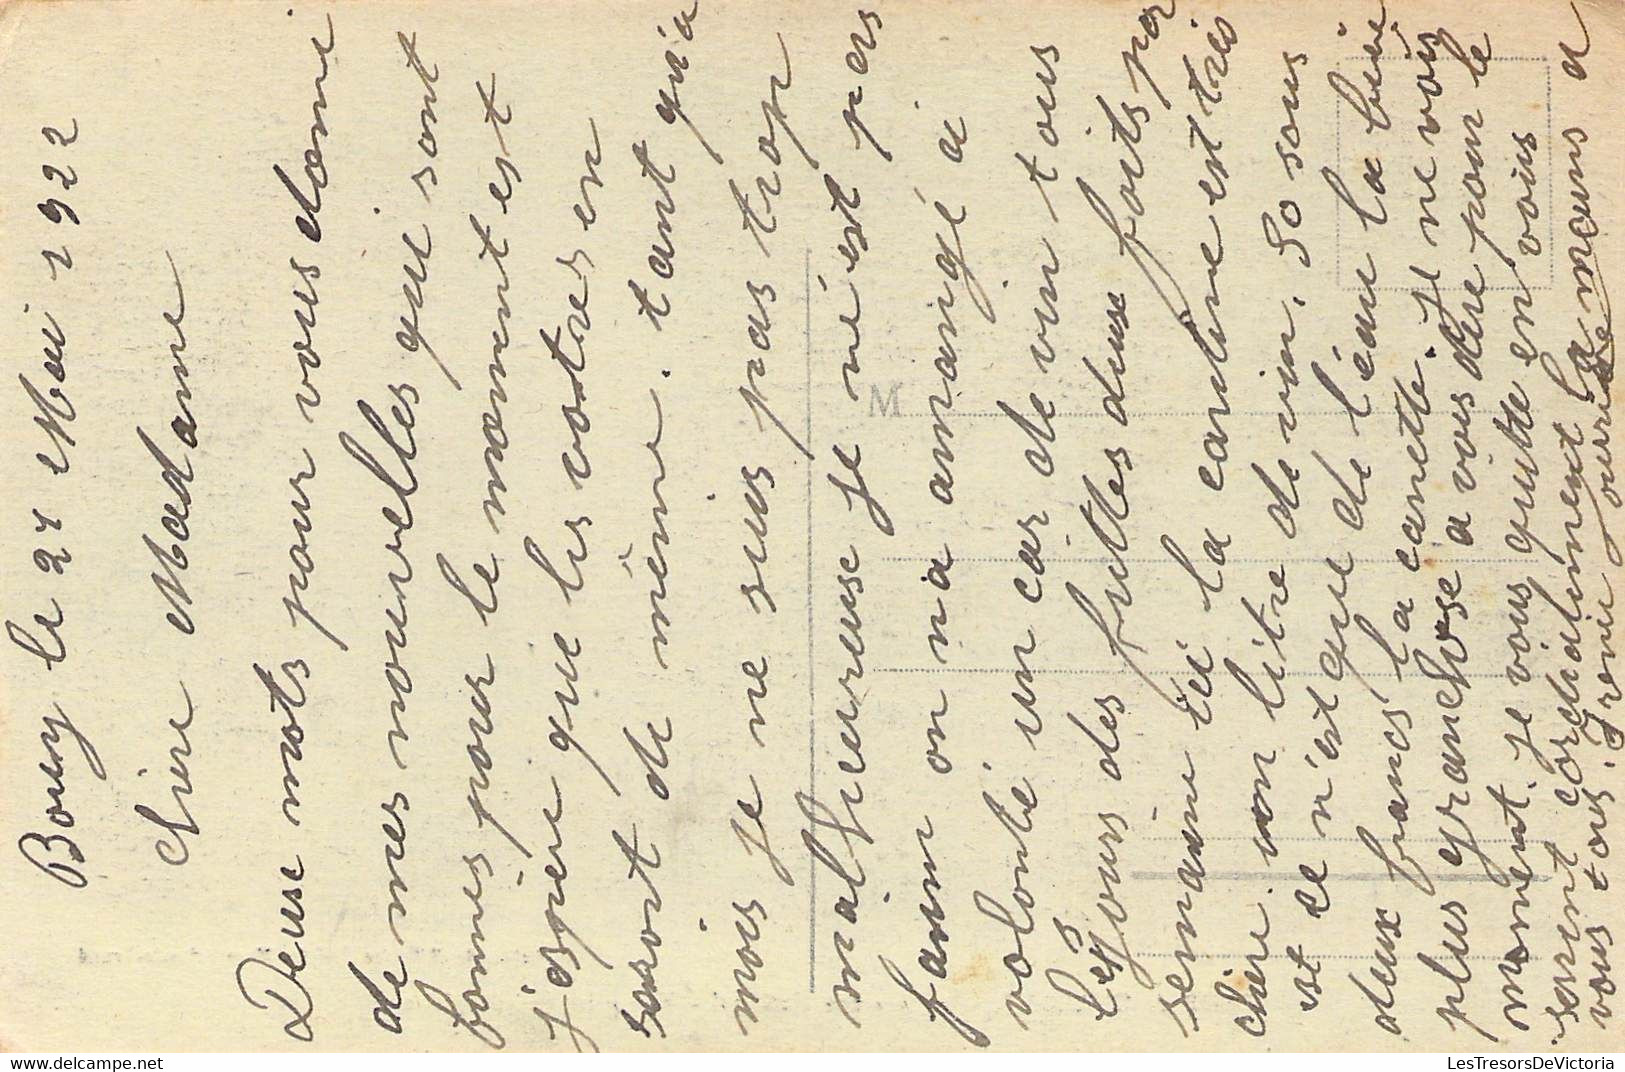 Bouy le 24 Mai 1922
Chère Madame
Deux mots pour vous doné
de mes nouvelles qui sont
bonnes pour le moment est
j'espere que les votres en
soront de même. tant qu'a
mois je ne suis pas trop
malheureuse je n'est pas
faim on n'a a mangé a
volonté un car de vin tous
les jours des frittes deux foits par
semaine ici la cantine est très
chère un litre de vin. 30 sous
et ce n'est que de l'eau la biere
deux francs la canette. je ne vois
plus granchose a vous dire pour le
moment. je vous quitte en vous
serrent cordialment la mains a
vous tous. Irenie
M
LesTresorsDeVictoria
delcampe.net